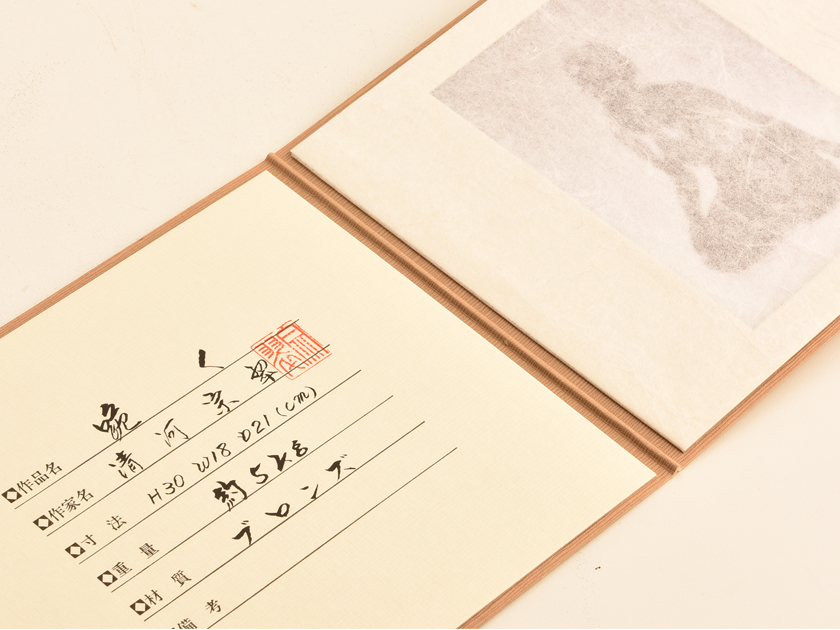 作品名 跪く
作家名 清河宗翠
寸法 H30 W18 D21(cm)
重量 約5kg
材質 ブロンズ
備考